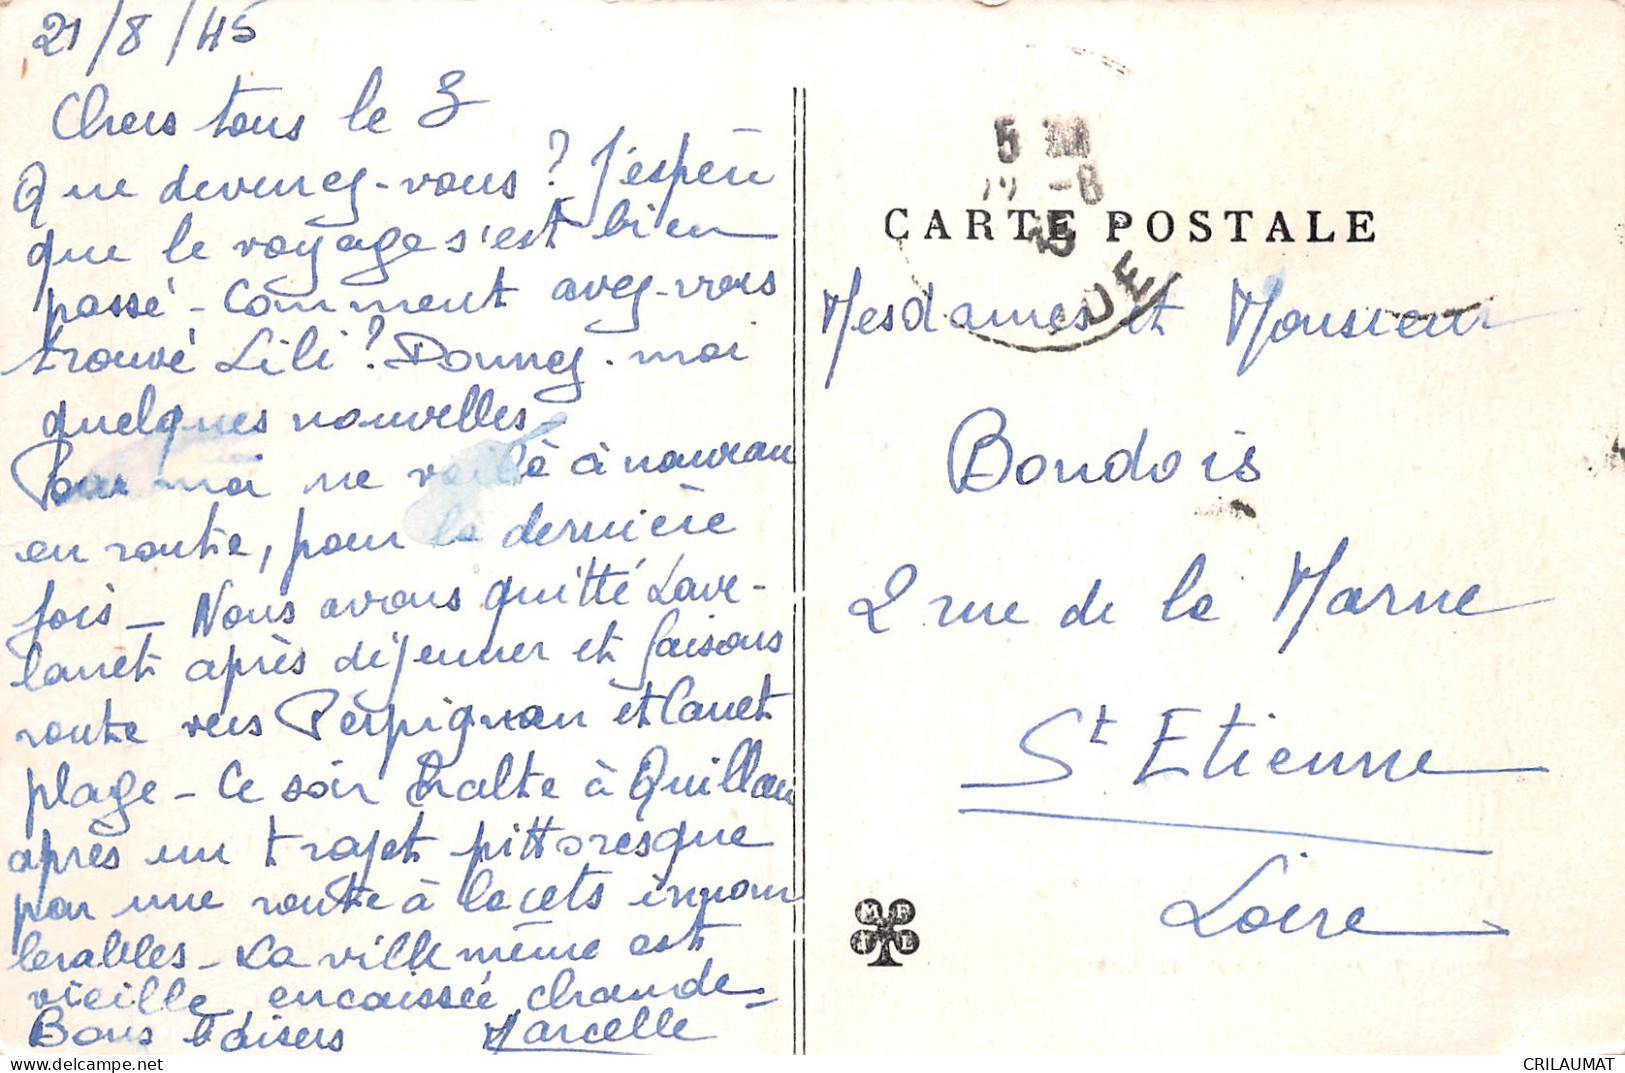 21/8/45
Chers tous le 3
Que devenez-vous ? J'espère
que le voyage s'est bien
passé - Comment avez-vous
trouvé Lili ? Donnez-moi
quelques nouvelles.
Pour moi me voilà à nouveau
en route, pour la dernière
fois - Nous avons quitté Lave-
lanet après déjeuner et faisons
route vers Perpignan et Canet
plage - Ce soir halte à Quillan
après un trajet pittoresque
par une route à lacets innom
brables - La ville même est
vieille encaissée chaude -
Bons baisers Marcelle
CARTE POSTALE
Mesdames et Monsieur
Boudois
2 rue de la Marne
St Etienne
Loire
5
-8
45
UE
M F
I L
CRILAUMAT